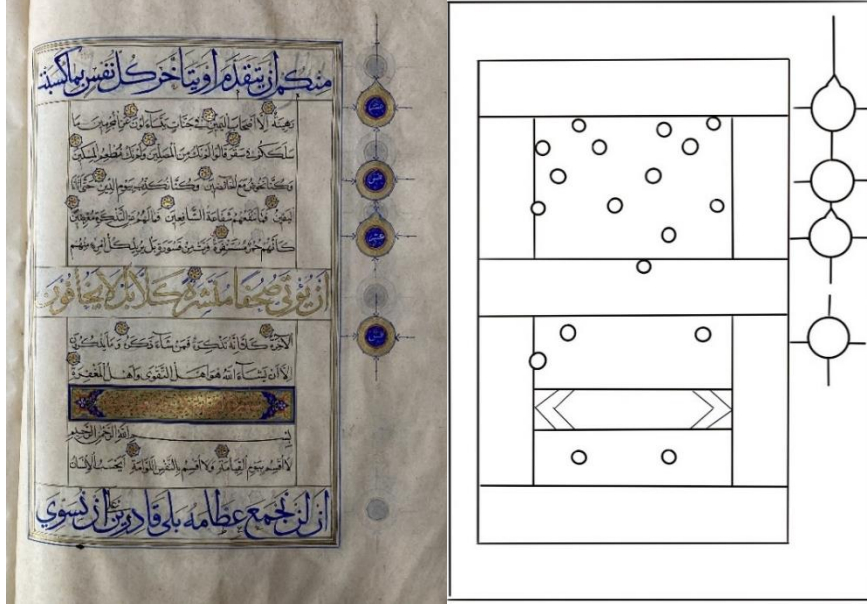 منكم أن يتقدم أو يتأخر كل نفس بما كسبت
رهينة إلا أصحاب اليمين في جنات يتساءلون عن المجرمين ما
سلككم في سقر قالوا لم نك من المصلين ولم نك نطعم المسكين
وكنا نخوض مع الخائضين وكنا نكذب بيوم الدين حتى أتانا
اليقين فما تنفعهم شفاعة الشافعين فما لهم عن التذكرة معرضين
كأنهم حمر مستنفرة فرت من قسورة بل يريد كل امرئ منهم
أن يؤتى صحفا منشرة كلا بل لا يخافون
الآخرة كلا إنه تذكرة فمن شاء ذكره وما يذكرون
إلا أن يشاء الله هو أهل التقوى وأهل المغفرة
بسم الله الرحمن الرحيم
لا أقسم بيوم القيامة ولا أقسم بالنفس اللوامة أيحسب الإنسان
أن لن نجمع عظامه بلى قادرين على أن نسوي